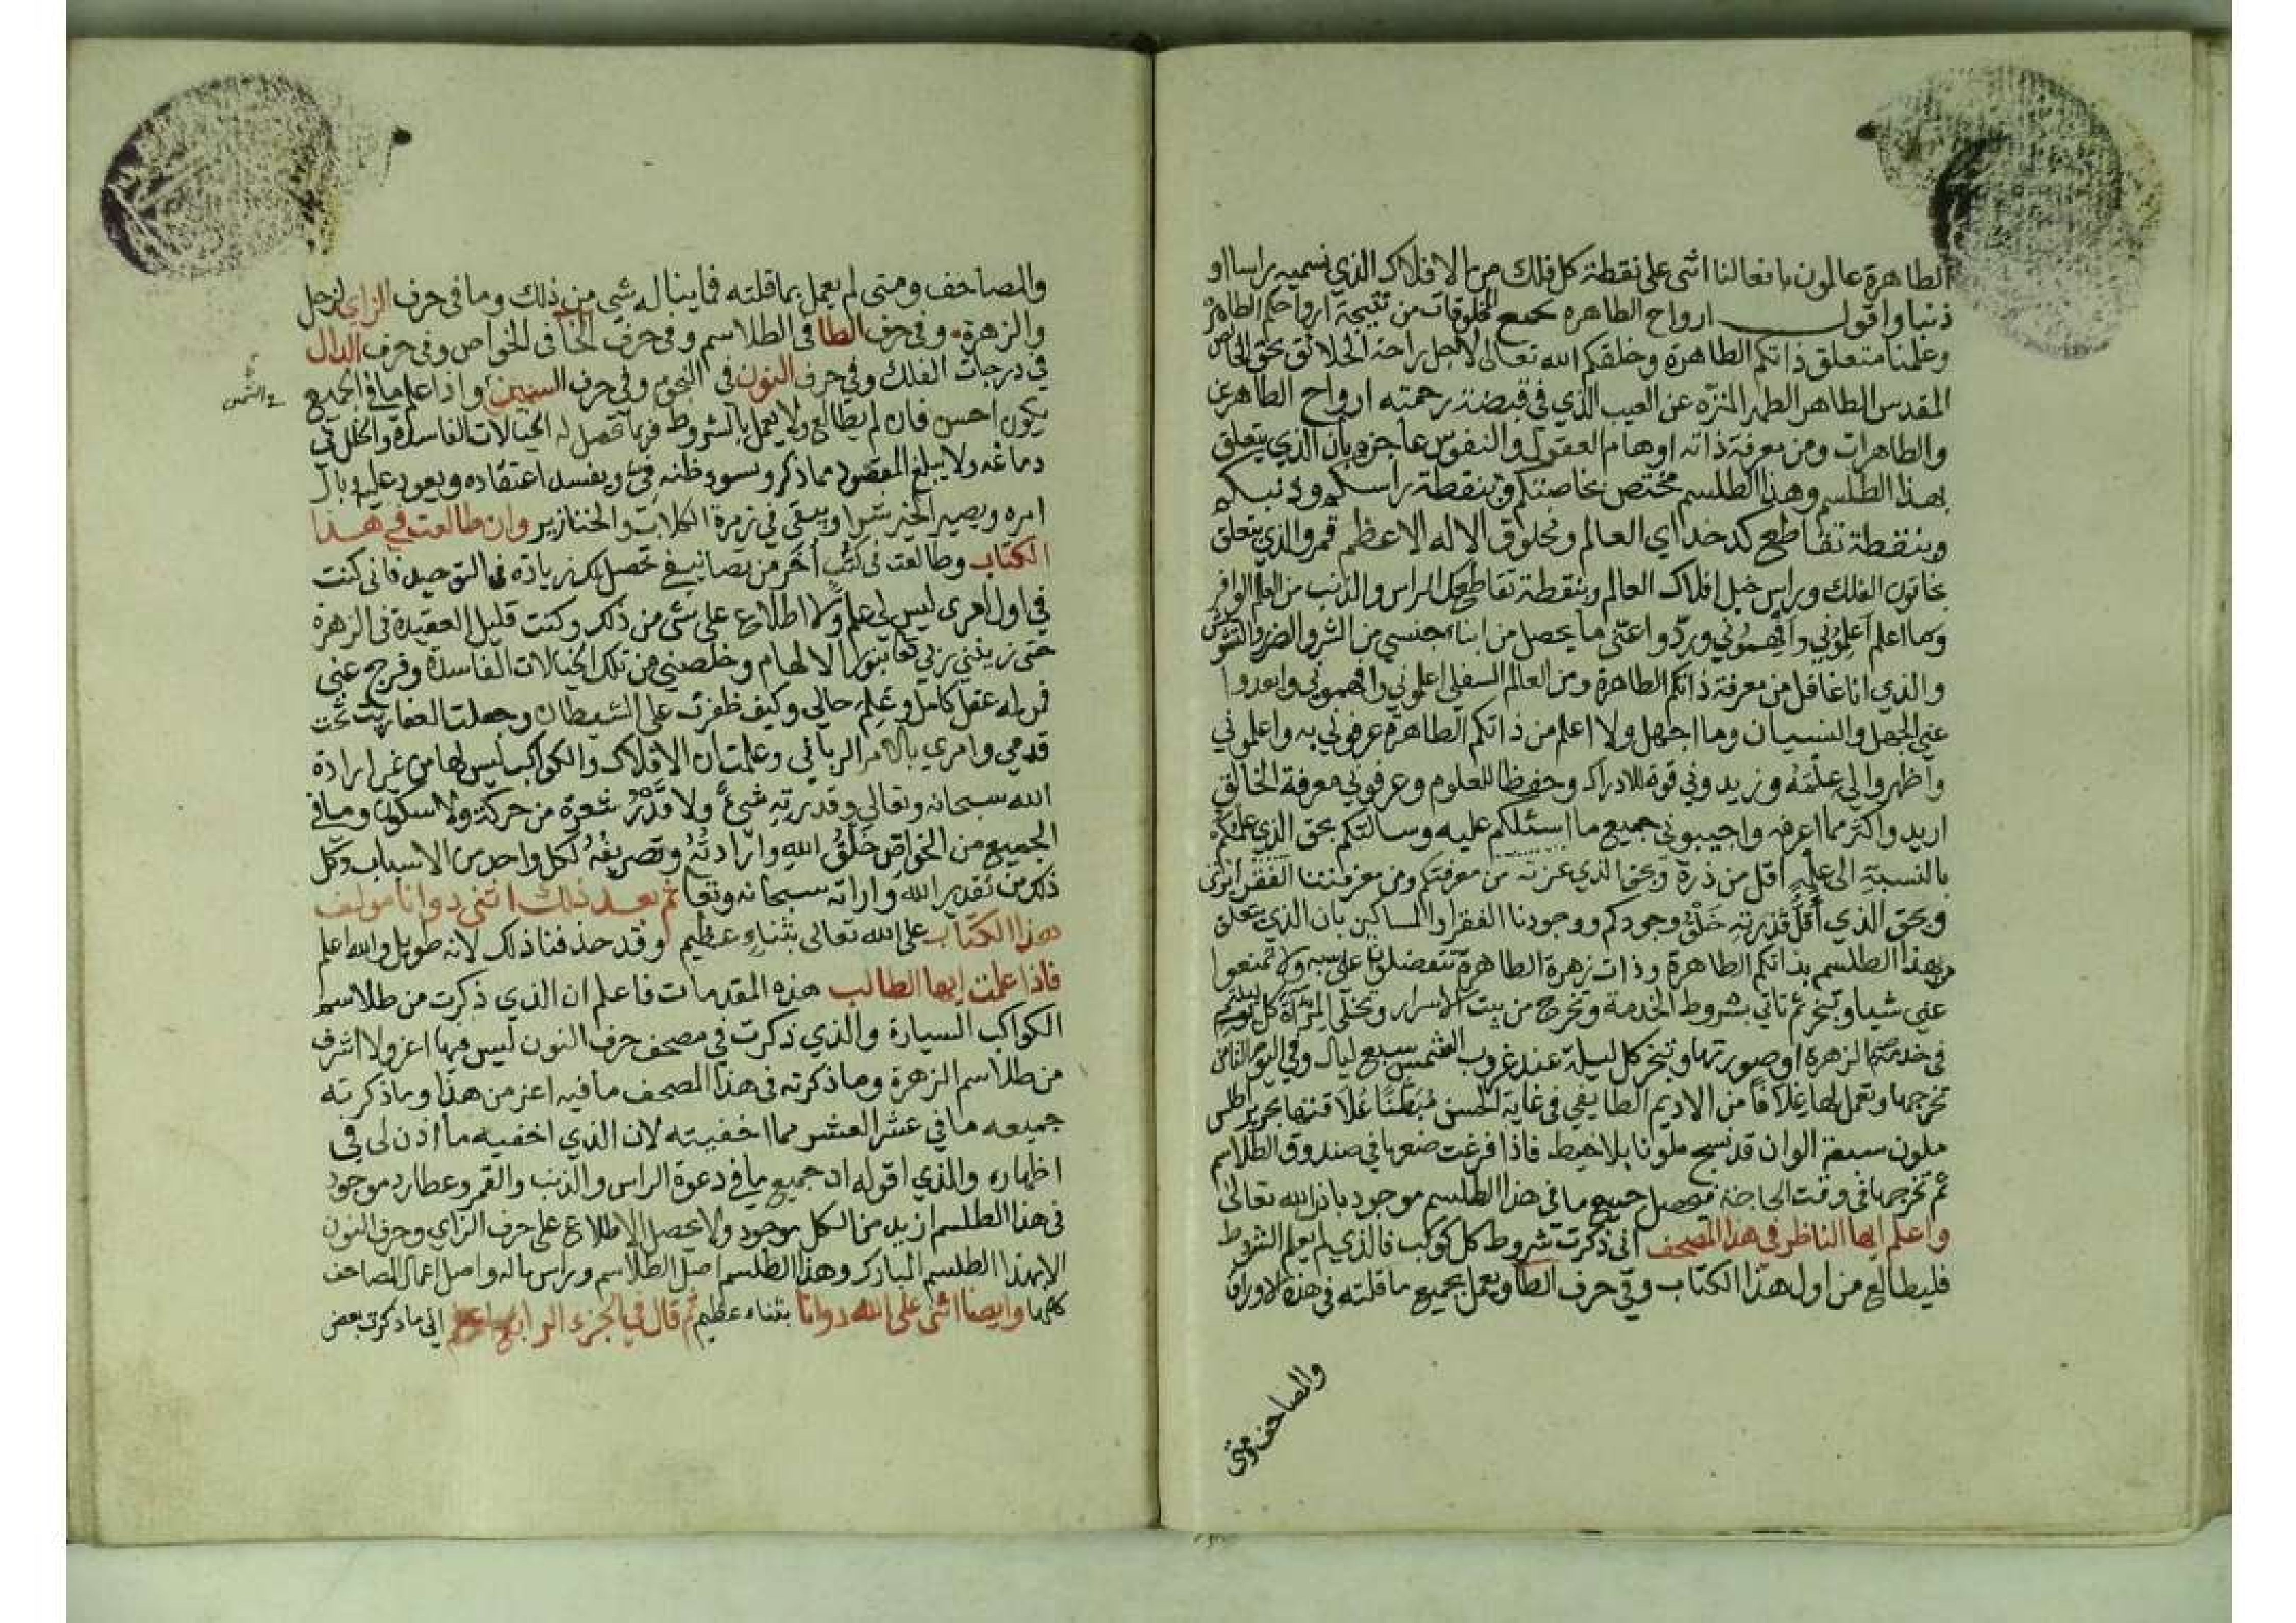 الطاهرة عالمون بافعالنا اثنى على نقطة كل فلك من الافلاك الذي نسميه راسا او
ذنبا واقول ارواح الطاهره بجميع المخلوقات من نتيجة ارواحكم الطاهرة
وعلمنا متعلق ذاتكم الطاهرة وخلقكم الله تعالى لاجل راحة الخلائق بحق الخالص
المقدس الطاهر الطهر المنزه عن العيب الذي في قبضة رحمته ارواح الطاهرين
والطاهرات ومن معرفة ذاته اوهام العقول والنفوس عاجزه بان الذي يتعلق
بهذا الطلسم وهذا الطلسم مختص بخاصتكم وبنقطة راسكم وذنبكم
وبنقطة تقاطع كدخداي العالم ومخلوق الاله الاعظم قمر والذي يتعلق
بخاتون الفلك وبراس خيل افلاك العالم وبنقطة تقاطع كل الراس والذنب من العلم الوافر
وكما اعلم اعلموني وافهموني وردوا عني ما يحصل من ابناء جنسي من الشر والضر والتشوش
والذي انا غافل من معرفة ذاتكم الطاهرة ومن العالم السفلي اعلموني وافهموني وابعدوا
عني الجهل والنسيان وما اجهل ولا اعلم من ذاتكم الطاهرة عرفوني به واعلموني
واظهروا لي علمه وزيدوني قوة للادراك وحفظا للعلوم وعرفوني معرفة الخالق
اريد واكثر مما اعرفه واجيبوني جميع ما اسئلكم عليه وسالتكم بحق الذي علمكم
بالنسبة الى علمه اقل من ذرة وبحق الذي عزته من معرفتكم ومن معرفتنا
وبحق الذي أقل قدرته خلق وجودكم ووجودنا الفقرا والمساكين بان الذي يتعلق
بهذا الطلسم بذاتكم الطاهرة وذات زهرة الطاهرة تتفضلوا علي به ولا تمنعوا
عني شيا وتبخر ثم تاتي بشروط الخدمة وتخرج من بيت الاسرار وتخلي المرآة كل
في خدمة الزهرة او صورتها وتبخر كل ليلة عند غروب الشمس سبع ليال وفي اليوم الثامن
تخرجها وتعمل لها غلافا من الاديم الطايفي في غاية الحسن مبطنا علاقتها بحرير اطلس
ملون سبعة الوان قد نسج ملونا بلا خيط فاذا فرغت ضعها في صندوق الطلاسم
ثم تخرجها في وقت الحاجة فيحصل جميع ما في هذا الطلسم موجود باذن الله تعالى
واعلم ايها الناظر في هذا المصحف اني ذكرت شروط كل كوكب فالذي لم يعلم الشروط
فليطالع من اول هذا الكتاب وفي حرف الطا ويعمل بجميع ما قلته في هذه الاوراق
والمصاحف ومتى
والمصاحف ومتى لم يعمل بما قلته فما يناله شي من ذلك وما في حرف الزاي لزحل
والزهرة وفي حرف الطا في الطلاسم وفي حرف الخا في الخواص وفي حرف الدال
في درجات الفلك وفي حرف النون في النجوم وفي حرف السين واذا علم ما في الجميع
في الشمس
يكون احسن فان لم يطالع ولا يعمل بالشروط فربما تحصل له الخيالات الفاسدة والخلل في
دماغه ولا يبلغ المقصود مما ذكر وسوء ظنه في ويفسد اعتقاده ويعود عليه وبال
امره ويصير الخير شرا ويبقى في زمرة الكلاب والخنازير وان طالعت في هذا
الكتاب وطالعت في كتب أخر من تصانيفي تحصل لك زيادة في التوحيد فاني كنت
في اول امري ليس لي علم ولا اطلاع على شئ من ذلك وكنت قليل العقيدة في الزهرة
حتى زينني ربي تعا بنور الالهام وخلصني من تلك الخيالات الفاسدة وفرج عني
فمن له عقل كامل وعلم حالي وكيف ظفرت على الشيطان وجعلت العفاريت تحت
قدمي وامري بالامر الرباني وعلمت ان الافلاك والكواكب ليس لها من غير ارادة
الله سبحانه وتعالى وقدرته شئ ولا قدر شعرة من حركة ولا سكون وما في
الجميع من الخواص خلق الله وارادته وتصريفه لكل واحد من الاسباب وكل
ذلك من تقدير الله وارادته سبحانه وتعا ثم بعد ذلك اثنى دوانا مولف
هذا الكتاب على الله تعالى بثناء عظيم وقد حذفنا ذلك لانه طويل والله اعلم
فاذا علمت ايها الطالب هذه المقدمات فاعلم ان الذي ذكرت من طلاسم
الكواكب السيارة والذي ذكرت في مصحف حرف النون ليس فيها اعز ولا اشرف
من طلاسم الزهرة وما ذكرته في هذا المصحف ما فيه اعز من هذا وما ذكرته
جميعه ما في عشر العشر مما اخفيته لان الذي اخفيه ما اذن لي في
اظهاره والذي اقوله ان جميع ما في دعوة الراس والذنب والقمر وعطارد موجود
في هذا الطلسم ازيد من الكل موجود ولا يحصل الاطلاع على حرف الزاي وحرف النون
الا بهذا الطلسم المبارك وهذا الطلسم اصل الطلاسم وراس ماله واصل اعمال المصاحف
كلها وايضا اثنى على الله دوانا بثناء عظيم ثم قال في الجزء الرابع اعلم اني ما ذكرت بعض